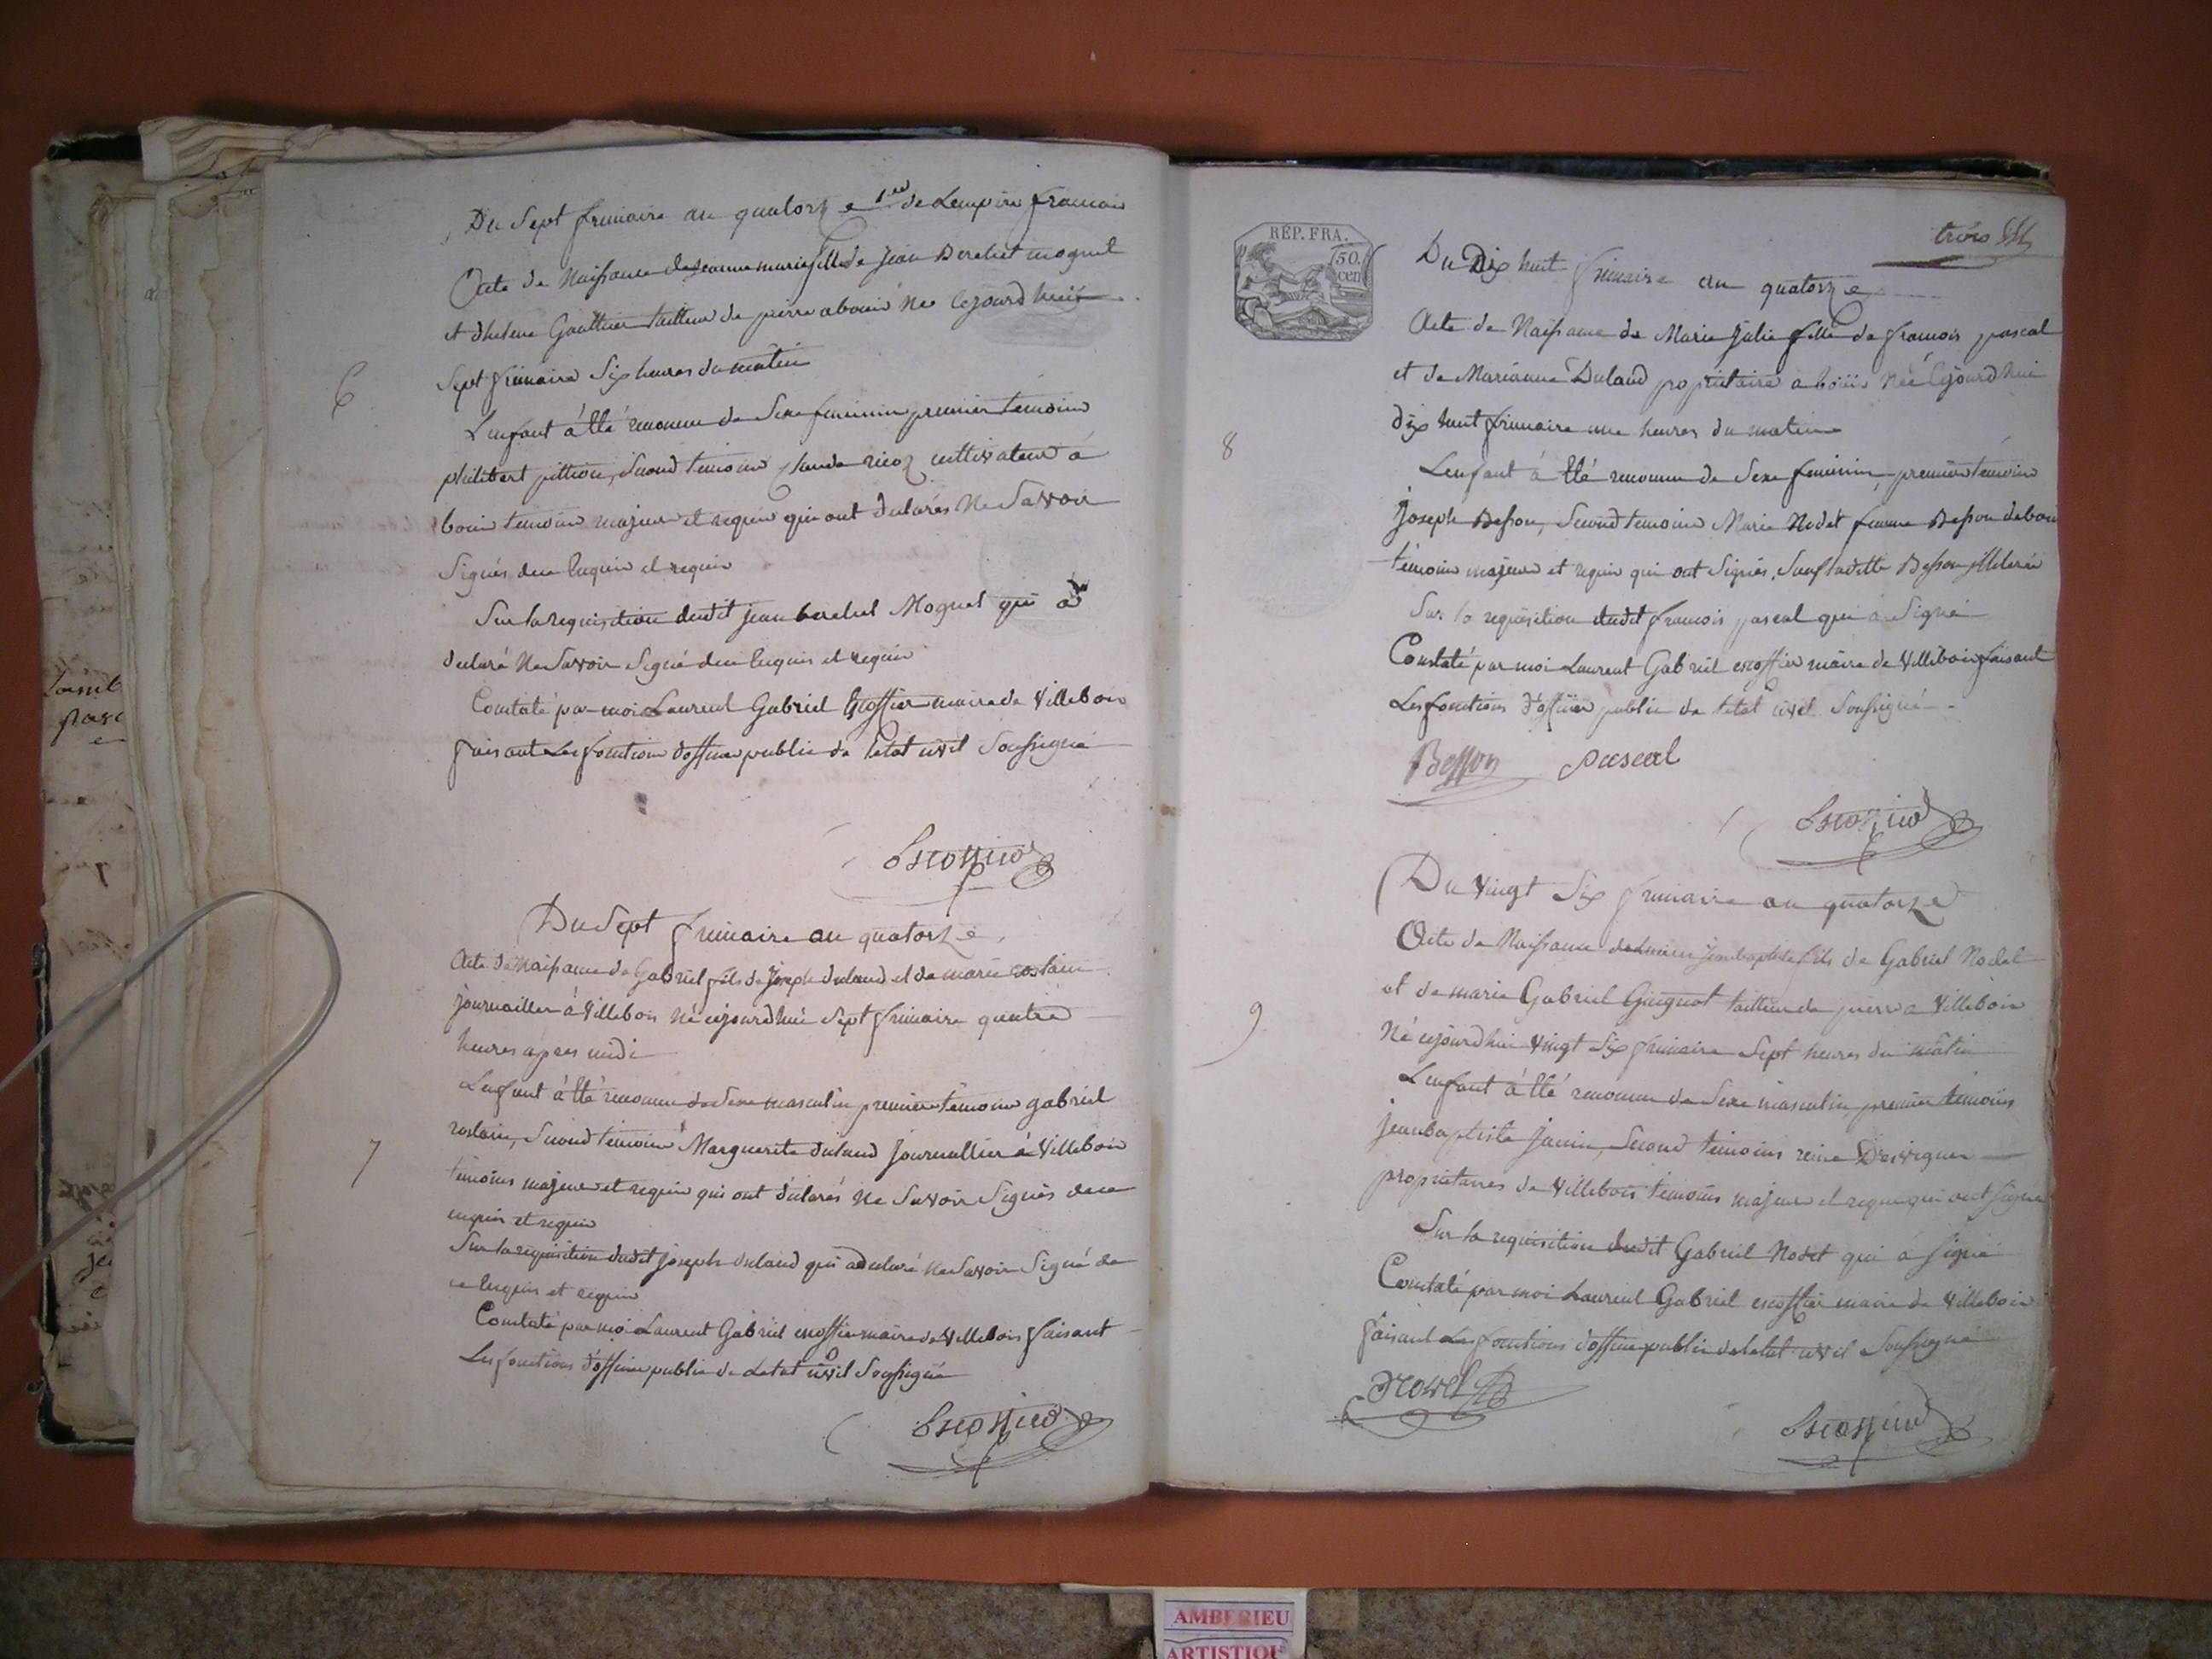 Du Sept frimaire an quatorze 1er de Lempire francais
Acte de Naissance de jeanne marie fille de jean Berchet moguet
et dhelene Gauthier tailleur de pierre a bouis Née cejourdhuit
Sept frimaire Six heures du matin
6
Lenfant à été reconnu de Sexe feminin premier temoin
philibert pittion, Second temoin Claude ricoz cultivateur à
bouis temoins majeur et requis qui ont dclarés Ne Savoir
Signés dece Enquis et requis
Sur la requisition dudit jean berchet Moguet qui a
declaré Ne Savoir Signé dece Enquis et requis
Constaté par moi Laurent Gabriel Escoffier maire de Villebois
faisant Les fonctions dofficier public de Letat civil Soussigné
Escoffier
Du Sept frimaire an quatorze
Acte de Naissance de Gabriel fils de joseph duland et de marie roslain
journallier à Villebois Né cejourdhui Sept frimaire quatre
heures apres midi
Lenfant à été reconnu de Sexe masculin premier temoin gabriel
roslain, Second temoin Marguerite duland journallier à Villebois
7
temoins majeur et requis qui ont déclarés Ne Savoir Signés dece
enquis et requis
Sur la requisition dudit joseph duland qui a declaré ne Savoir Signé de
ce Enquis et requis
Constaté par moi Laurent Gabriel escoffier maire de Villebois faisant
Les fonctions d'officier public de Letat civil Soussigné
Escoffier
trois
RÉP. FRA.
50.
cen
Du Dix huit frimaire an quatorze
Acte de Naissance de Marie julie fille de francois pascal
et de Marianne Duland propriétaire a bouis Née Cejourdhui
dix huit frimaire une heures du matin
8
Lenfant à été reconnu de Sexe feminin, premier temoin
joseph Besson, Second temoin Marie Nodet femme Besson de bouis
témoins majeurs et requis qui ont Signés, Sauf laditte Besson
Sur la requisition dudit francois pascal qui a Signé
Constaté par moi Laurent Gabriel escoffier maire de Villebois faisant
Les fonctions d'officier public de letat civil Soussigné
Besson pascal
Escoffier
Du Vingt Six frimaire an quatorze
Acte de Naissance de jeanbaptiste fils de Gabriel Nodet
et de marie Gabriel Guignot tailleur de pierre a Villebois
9
Né cejourdhui Vingt Six frimaire Sept heures du matin
Lenfant à été reconnu de Sexe masculin, premier temoins
jeanbaptiste janin, Second temoins reine Desvignes
proprietaires de Villebois temoins majeur et requis qui ont Signé
Sur la requisition dudit Gabriel Nodet qui a Signé
Constaté par moi Laurent Gabriel escoffier maire de Villebois
faisant Les fonctions dofficier public de letat civil Soussigné
Escoffier
AMBERIEU
ARTISTIQU